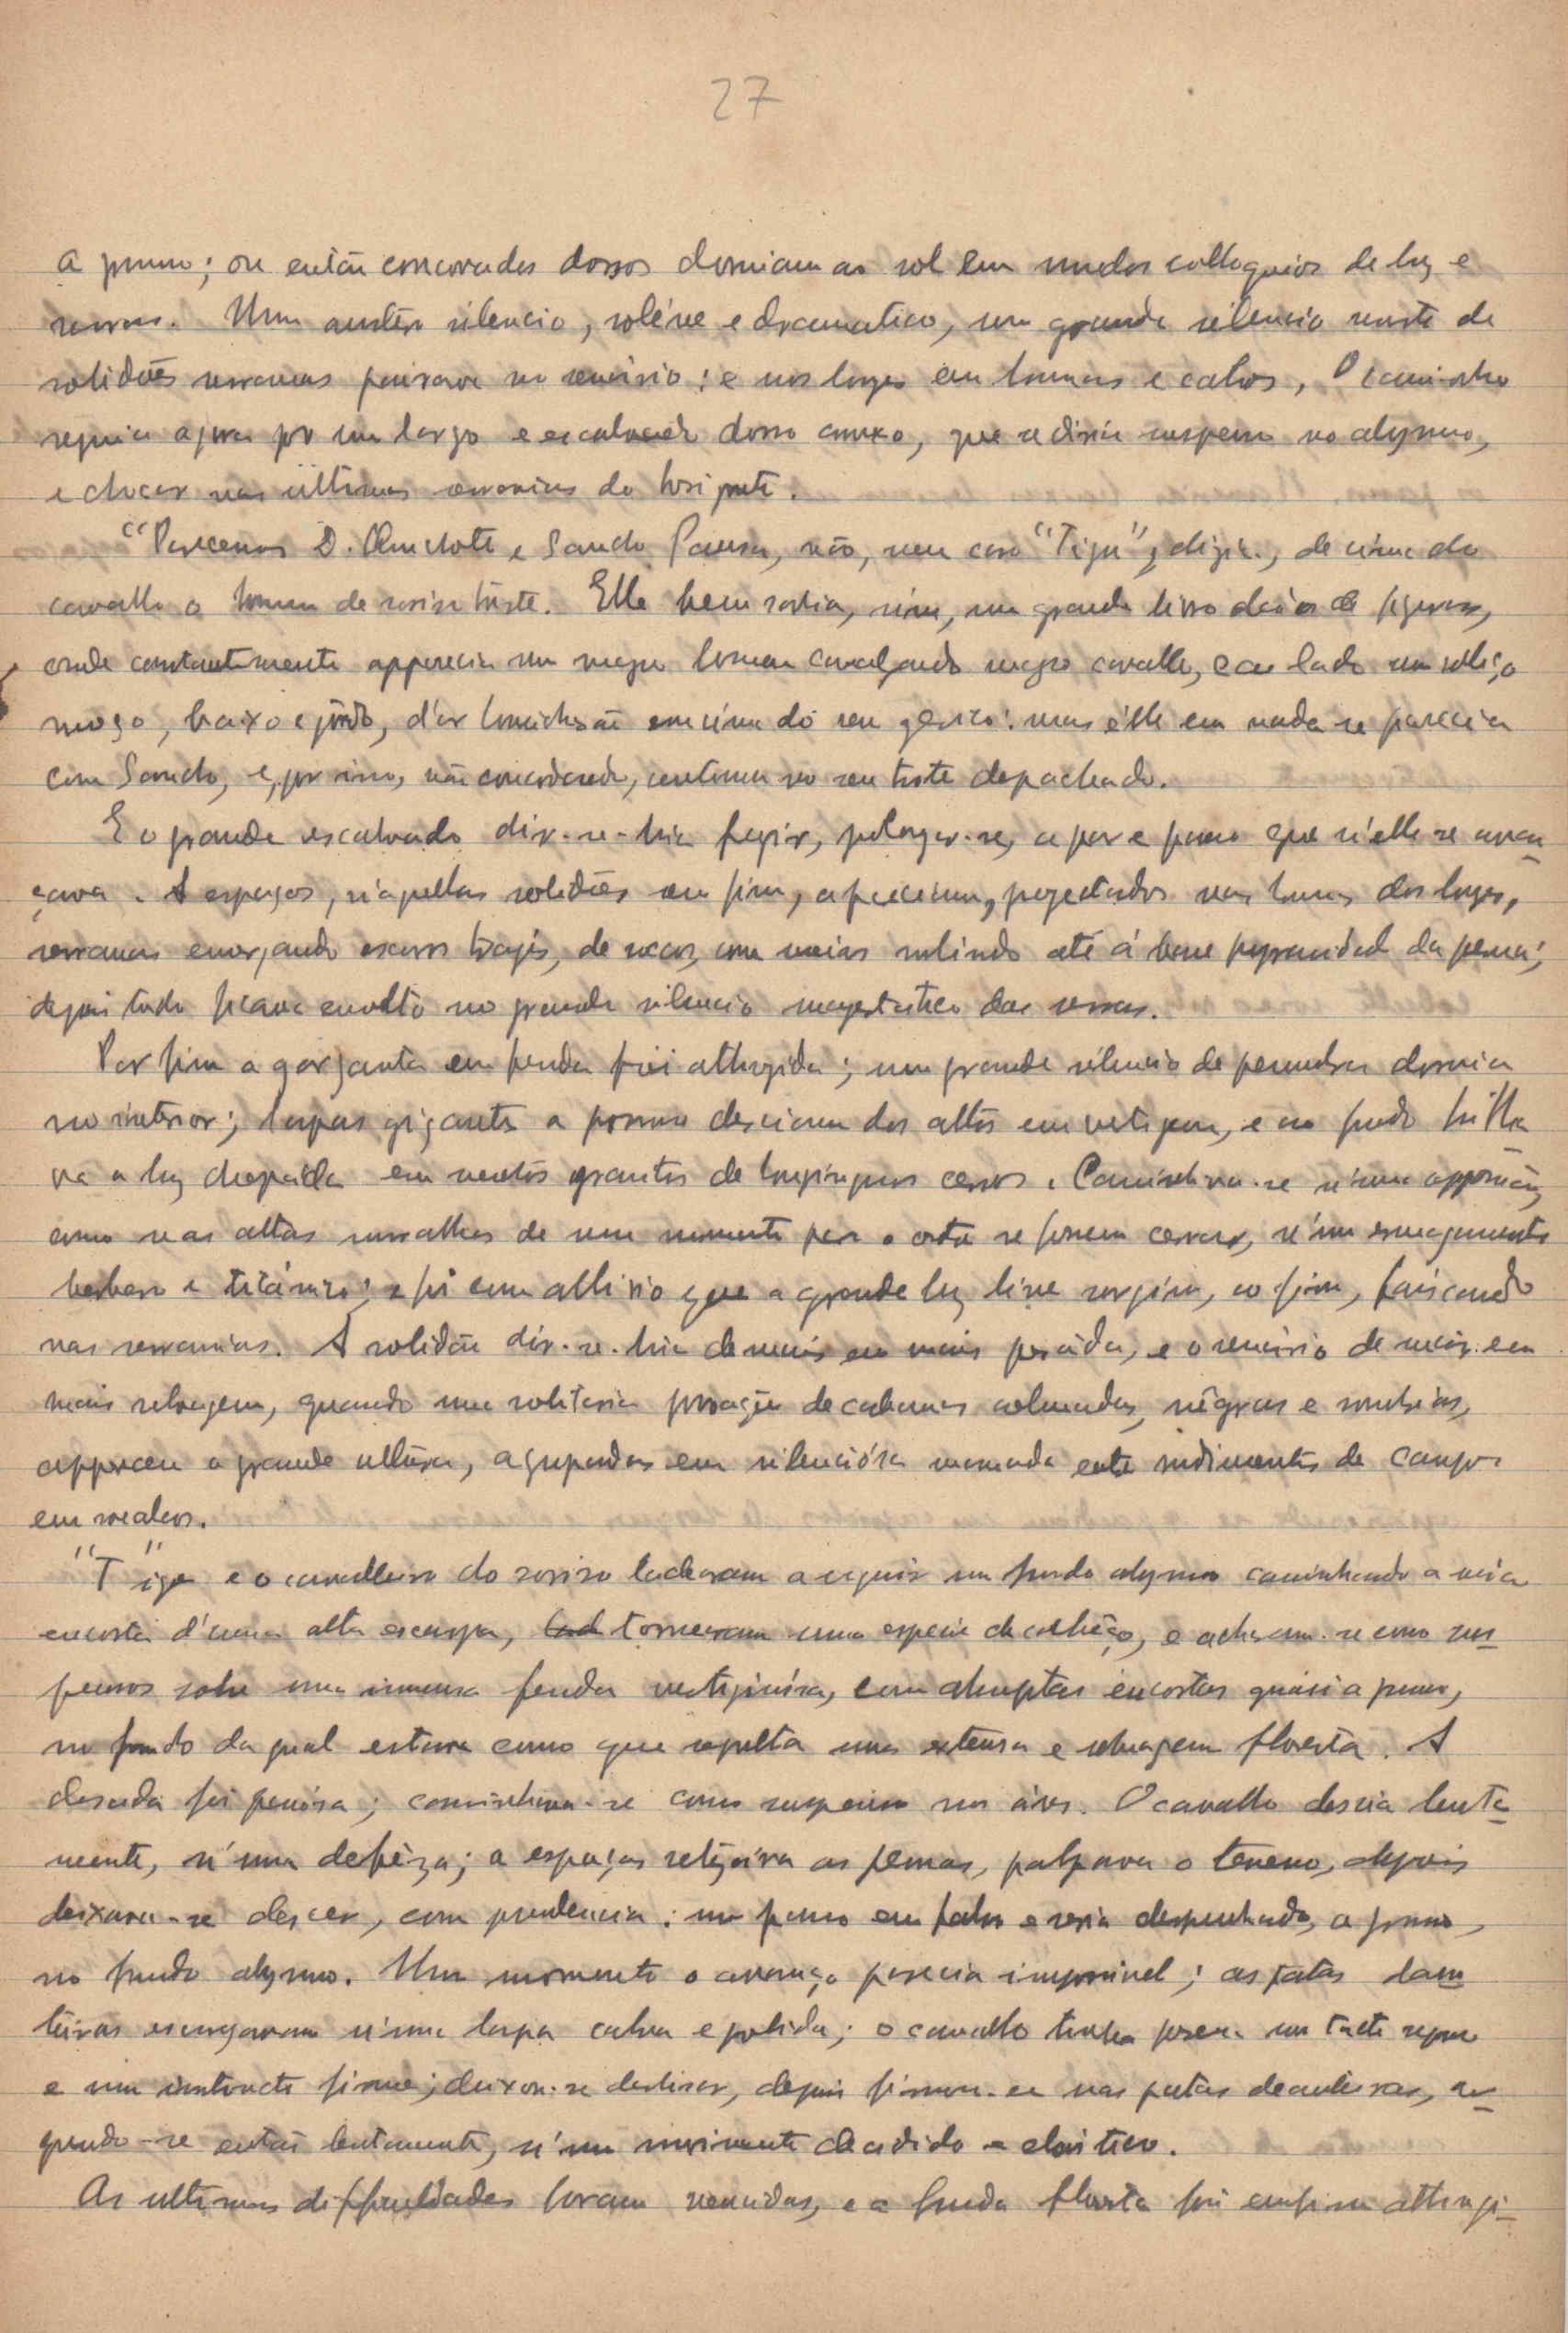 27
a prumo; ou então concovados dorsos dormiam ao sol em mudos colloquios de luz e
serras. Um austéro silencio, soléne e dramatico, um grande silencio de
solidões serranas pairava no scenário: e nos longes em lombas e calvos, O caminho
seguia agora por um largo e escalvado dorso convexo, que se diria suspenso no abysmo,
e chocar nas ultimas serranias do horisonte.
"Parecemos D. Quichote e Sancho Pansa, não, meu caro "Tigu", dizia, de cima do
cavallo o homem de sorriso triste. Elle bem sabia, sim, um grande livro cheio de figuras,
onde constantemente apparecia um magro homem cavalgando magro cavallo, e ao lado um
moço, baixo e gordo, d'ar em cima do seu gerico: mas élle em nada se parecia
com Sancho, e, por isso, não concordando, continuou no seu trote
E o grande escalvado dir-se-hia fugir, prolongar-se, a par e passo que n'elle se avan-
çava. A espaços, n'aquellas solidões sem fim, appareciam, projectados nas lombas dos longes,
serranas envergando escuros trajes, de socos, com meias subindo até á da perna;
depois tudo ficava envolto no grande silencio magestatico das serras.
Por fim a garganta em fenda foi attingida; um grande silencio de penumbra dormia
no interior; lapas gigantes a prumo desciam dos altos em vertigem, e ao fundo brilha-
va a luz em graniticos de longinquos cerros. Caminhava-se n'uma oppressão,
como se as altas muralhas de um momento para o outro se fossem cerrar, n'um esmagamento
barbaro e titánico; e foi com allivio que a grande luz livre surgiu, ao fim, faiscando
nas serranias. A solidão dir-se-hia de mais em mais pesáda, e o scenário de mais em
mais selvagem, quando uma solitaria povoação de cabanas colmadas, négras e sombrias,
appareceu a grande altúra, agrupadas em silenciósa manada entre rudimentos de campos
em socalcos.
"Tigu" e o cavalleiro do sorriso ladearam a seguir um fundo abysmo caminhando a meia
encosta d'uma alta escarpa, tornearam uma especie de cabêço, e acharam-se como sus-
pensos sobre uma immensa fenda vertiginósa, com abruptas encostas quási a prumo,
no fundo da qual estava como que sepulta uma extensa e selvagem floresta. A
descida foi penósa; caminhava-se como suspenso nos áres. O cavallo descia lenta-
mente, n'uma defêza; a espaços retezáva as pernas, palpava o terreno, depois
deixava-se descer, com prudencia: um passo em falso e seria despenhado, a prumo,
no fundo abysmo. Um momento o avanço parecia impossivel; as patas deam-
teiras escorregavam n'uma lapa calva e polida; o cavallo tinha porém um tacto seguro
e um instincto firme; deixou-se deslisar, depois firmou-se nas patas deanteiras, er-
guendo-se então lentamente, n'um movimento decidido e elastico.
As ultimas difficuldades foram vencidas, e a funda floresta foi emfim attingi-